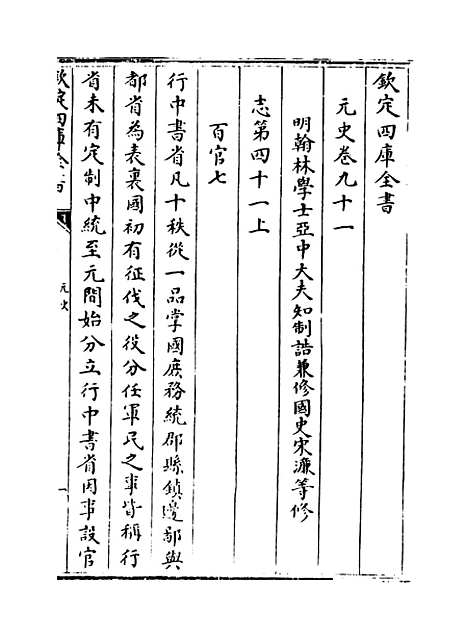 欽定四庫全書
元史卷九十一
明翰林學士亞中大夫知制誥兼修國史宋濂等修
志第四十一上
百官七
行中書省凡十秩從一品掌國庶務統郡縣鎮邊鄙與
都省為表裏國初有征伐之役分任軍民之事皆稱行
省未有定制中統至元間始分立行中書省因事設官
欽定四庫全書
元史
一